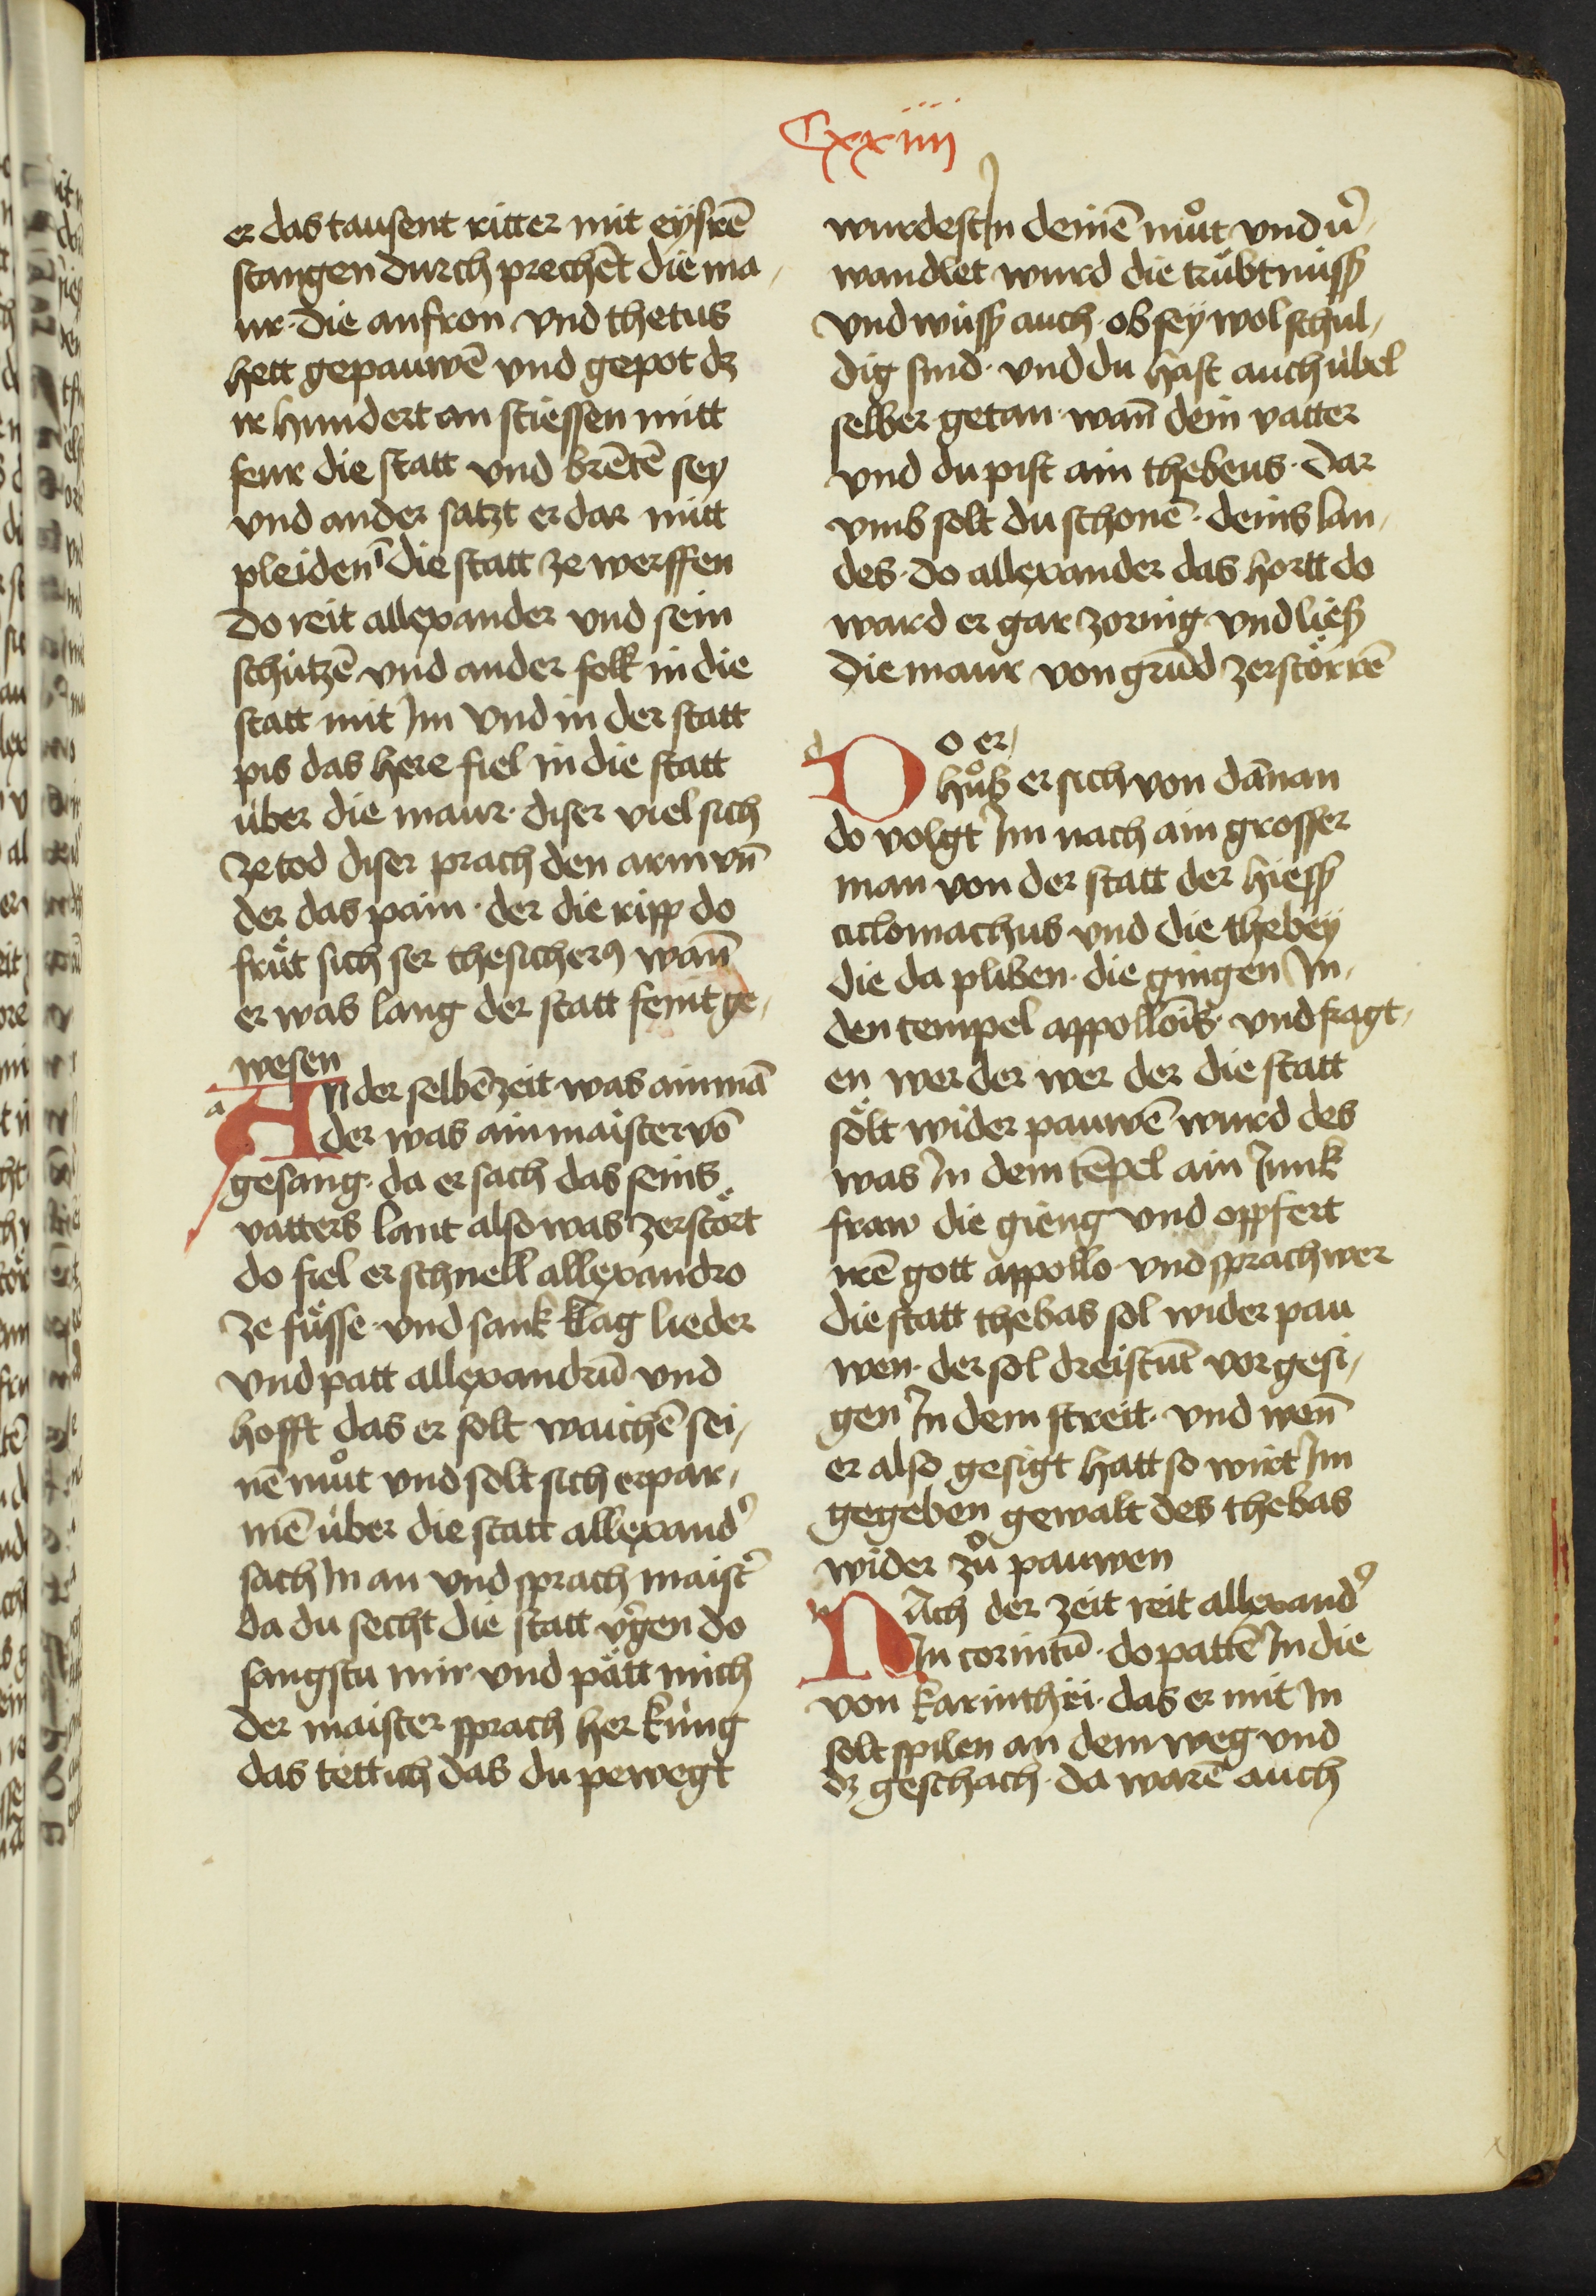 Cxxiiii
er das tausent ritter mit eÿsrē
stangen durch prechēt die ma-
ur · die anfron vnd thetus
hett gepauwē vnd gepot dz
ir hundert an stiessen mitt
feur die statt vnd brētē sey
vnd ander satzt er dar mitt
pleiden ī die statt ze werffen
do reit allexander vnd sein
schützē vnd ander folk in die
statt mit im vnd in der statt
pis das here fiel in die statt
über die maur · diser viel sich
ze tod diser prach den arm vn̄
der das pain · der die ripp do
fräut sich ser thesicherꝰ wan̄
er was lang der statt feint ge-
wesen
a An der selbē zeit was ain mā
der was ain maister vō
gesang · da er sach das seins
vatters lant also was zerstört
do fiel er schnell allexandro
ze füsse · vnd sank klag lieder
vnd patt allexandrū vnd
hofft das er solt waichē sei-
nē můt vnd solt sich erpar-
mē über die statt allexand᾽
sach in an vnd sprach maist᾽
da du secht die statt v᾽gen do
sangstu mir vnd pätt mich
der maister sprach her küng
das tett ich das du pewegt
wurdest in deinē můt vnd v᾽-
wandlet wurd die trübtnüss
vnd wüss auch · ob sey wol schul-
dig sind · vnd du hast auch übel
selber getan · wan̄ dein vatter
vnd du pist ain thebeus · dar
vmb solt du schonē · deins lan-
des · do allexander das hortt do
ward er gar zornig vnd ließ
die maur von grūd zerstörrē
d Do er
hůb er sich von dānan
do volgt im nach ain grosser
man von der statt der hiess
aclomachus vnd die thebey
die da pliben · die gingen in-
den tempel appollōis · vnd fragt-
en wer der wer der die statt
sölt wider pauwē wurd des
was in dem tēpel ain iunk
fraw die gieng vnd oppfert
irē gott appollo · vnd sprach wer
die statt thebas sol wider pau
wen · der sol dreistūt vor gesi-
gen in dem streit · vnd wen̄
er also gesigt hatt so wirt im
gegeben gewalt des thebas
wider zů pauwen
n Nach der zeit reit allexand᾽
in corintū · do pattē in die
von karinthÿ · das er mit in
solt spilen an dem weg vnd
dz geschach · da warē auch